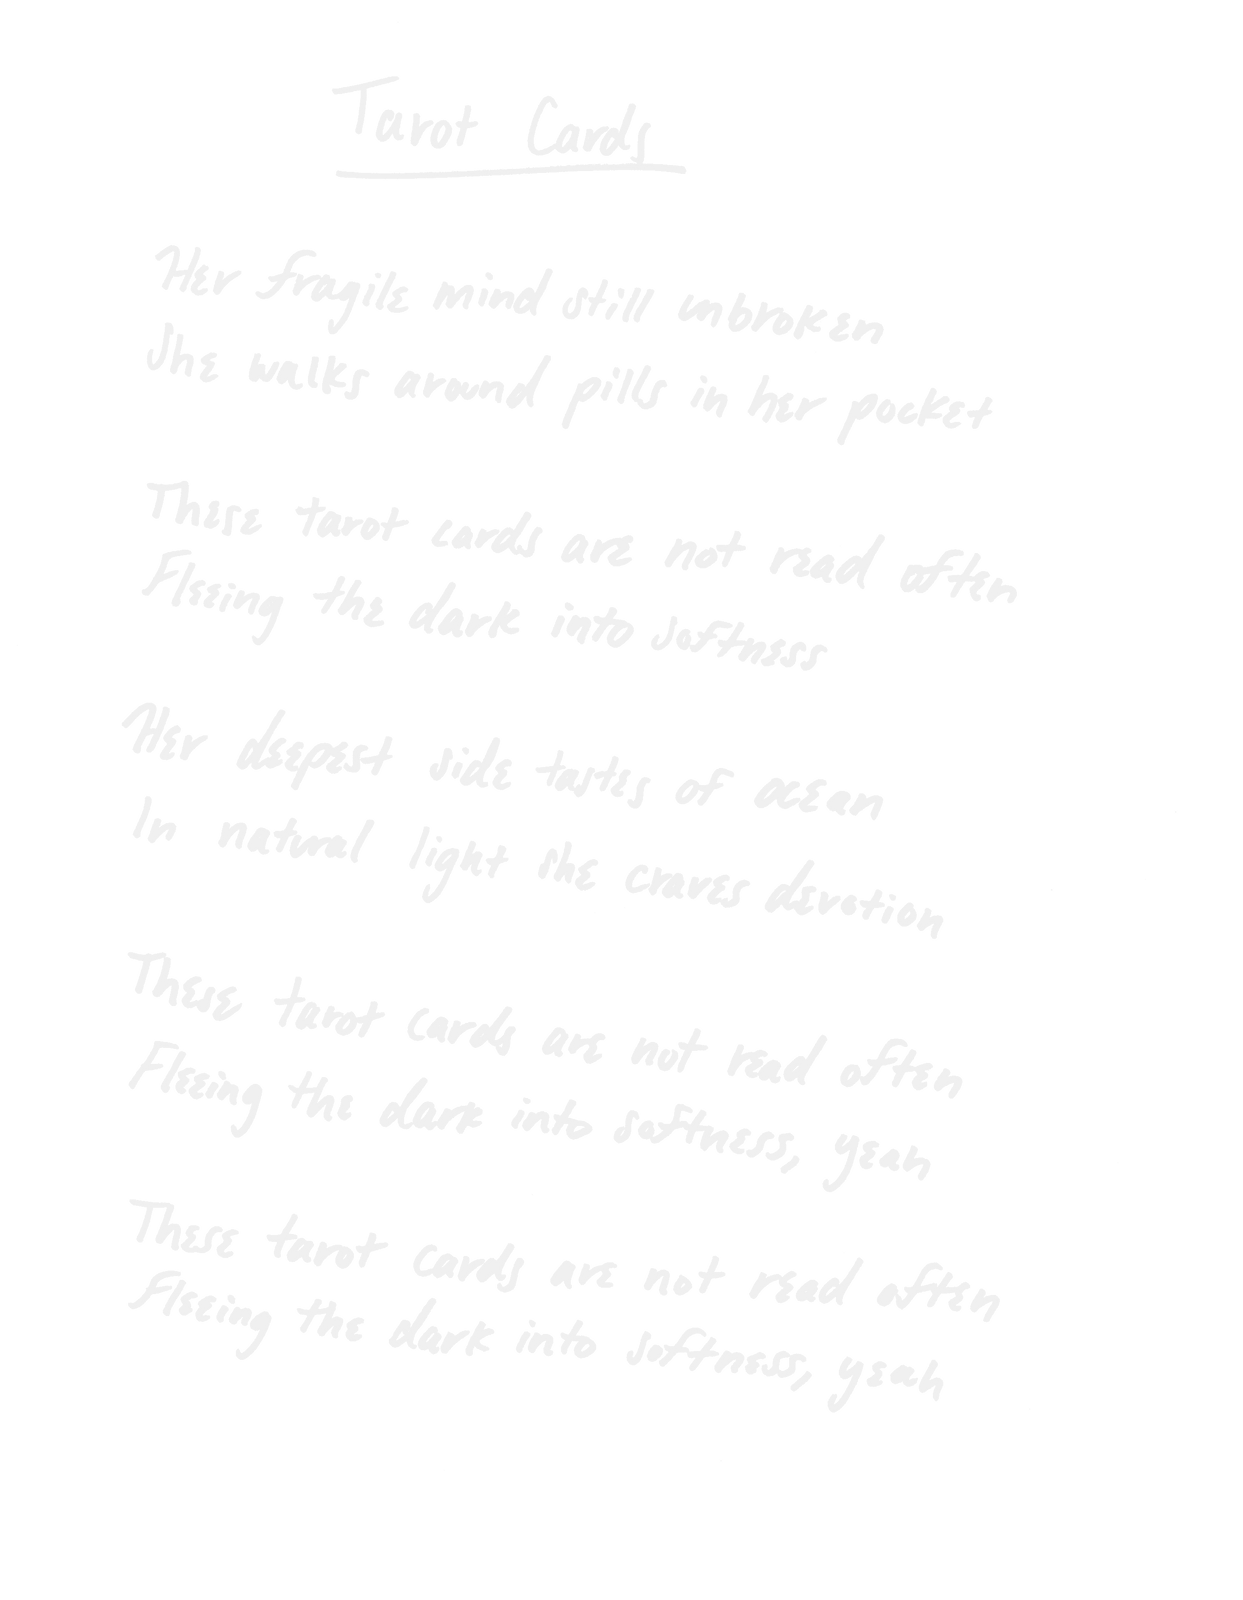 Tarot Cards
Her fragile mind still unbroken
She walks around pills in her pocket
These tarot cards are not read often
Fleeing the dark into softness
Her deepest side tastes of ocean
In natural light she craves devotion
These tarot cards are not read often
Fleeing the dark into softness, yeah
These tarot cards are not read often
Fleeing the dark into softness, yeah